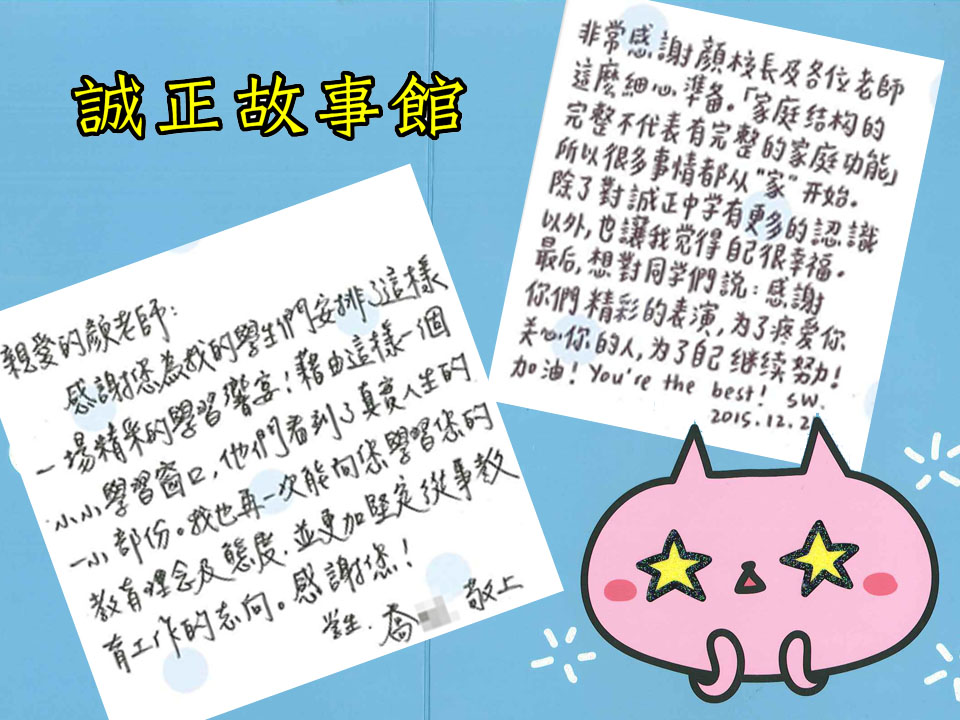 誠正故事館
非常感謝顏校長及各位老師
這麼細心準备。「家庭结构的
完整不代表有完整的家庭功能」
所以很多事情都从“家”开始。
除了對誠正中学有更多的認識
以外,也讓我觉得自己很幸福。
最后,想對同学們説:感謝
你們精彩的表演,为了疼爱你
关心你的人,为了自己继续努力!
加油! You're the best! SW.
2015.12.2
親愛的顏老師:
感謝您為我的學生們安排了這樣
一場精采的學習饗宴!藉由這樣一個
小小學習窗口,他們看到了真實人生的
一小部份。我也再一次能向您學習您的
教育理念及態度,並更加堅定從事教
育工作的志向。感謝您!
學生.喬 敬上